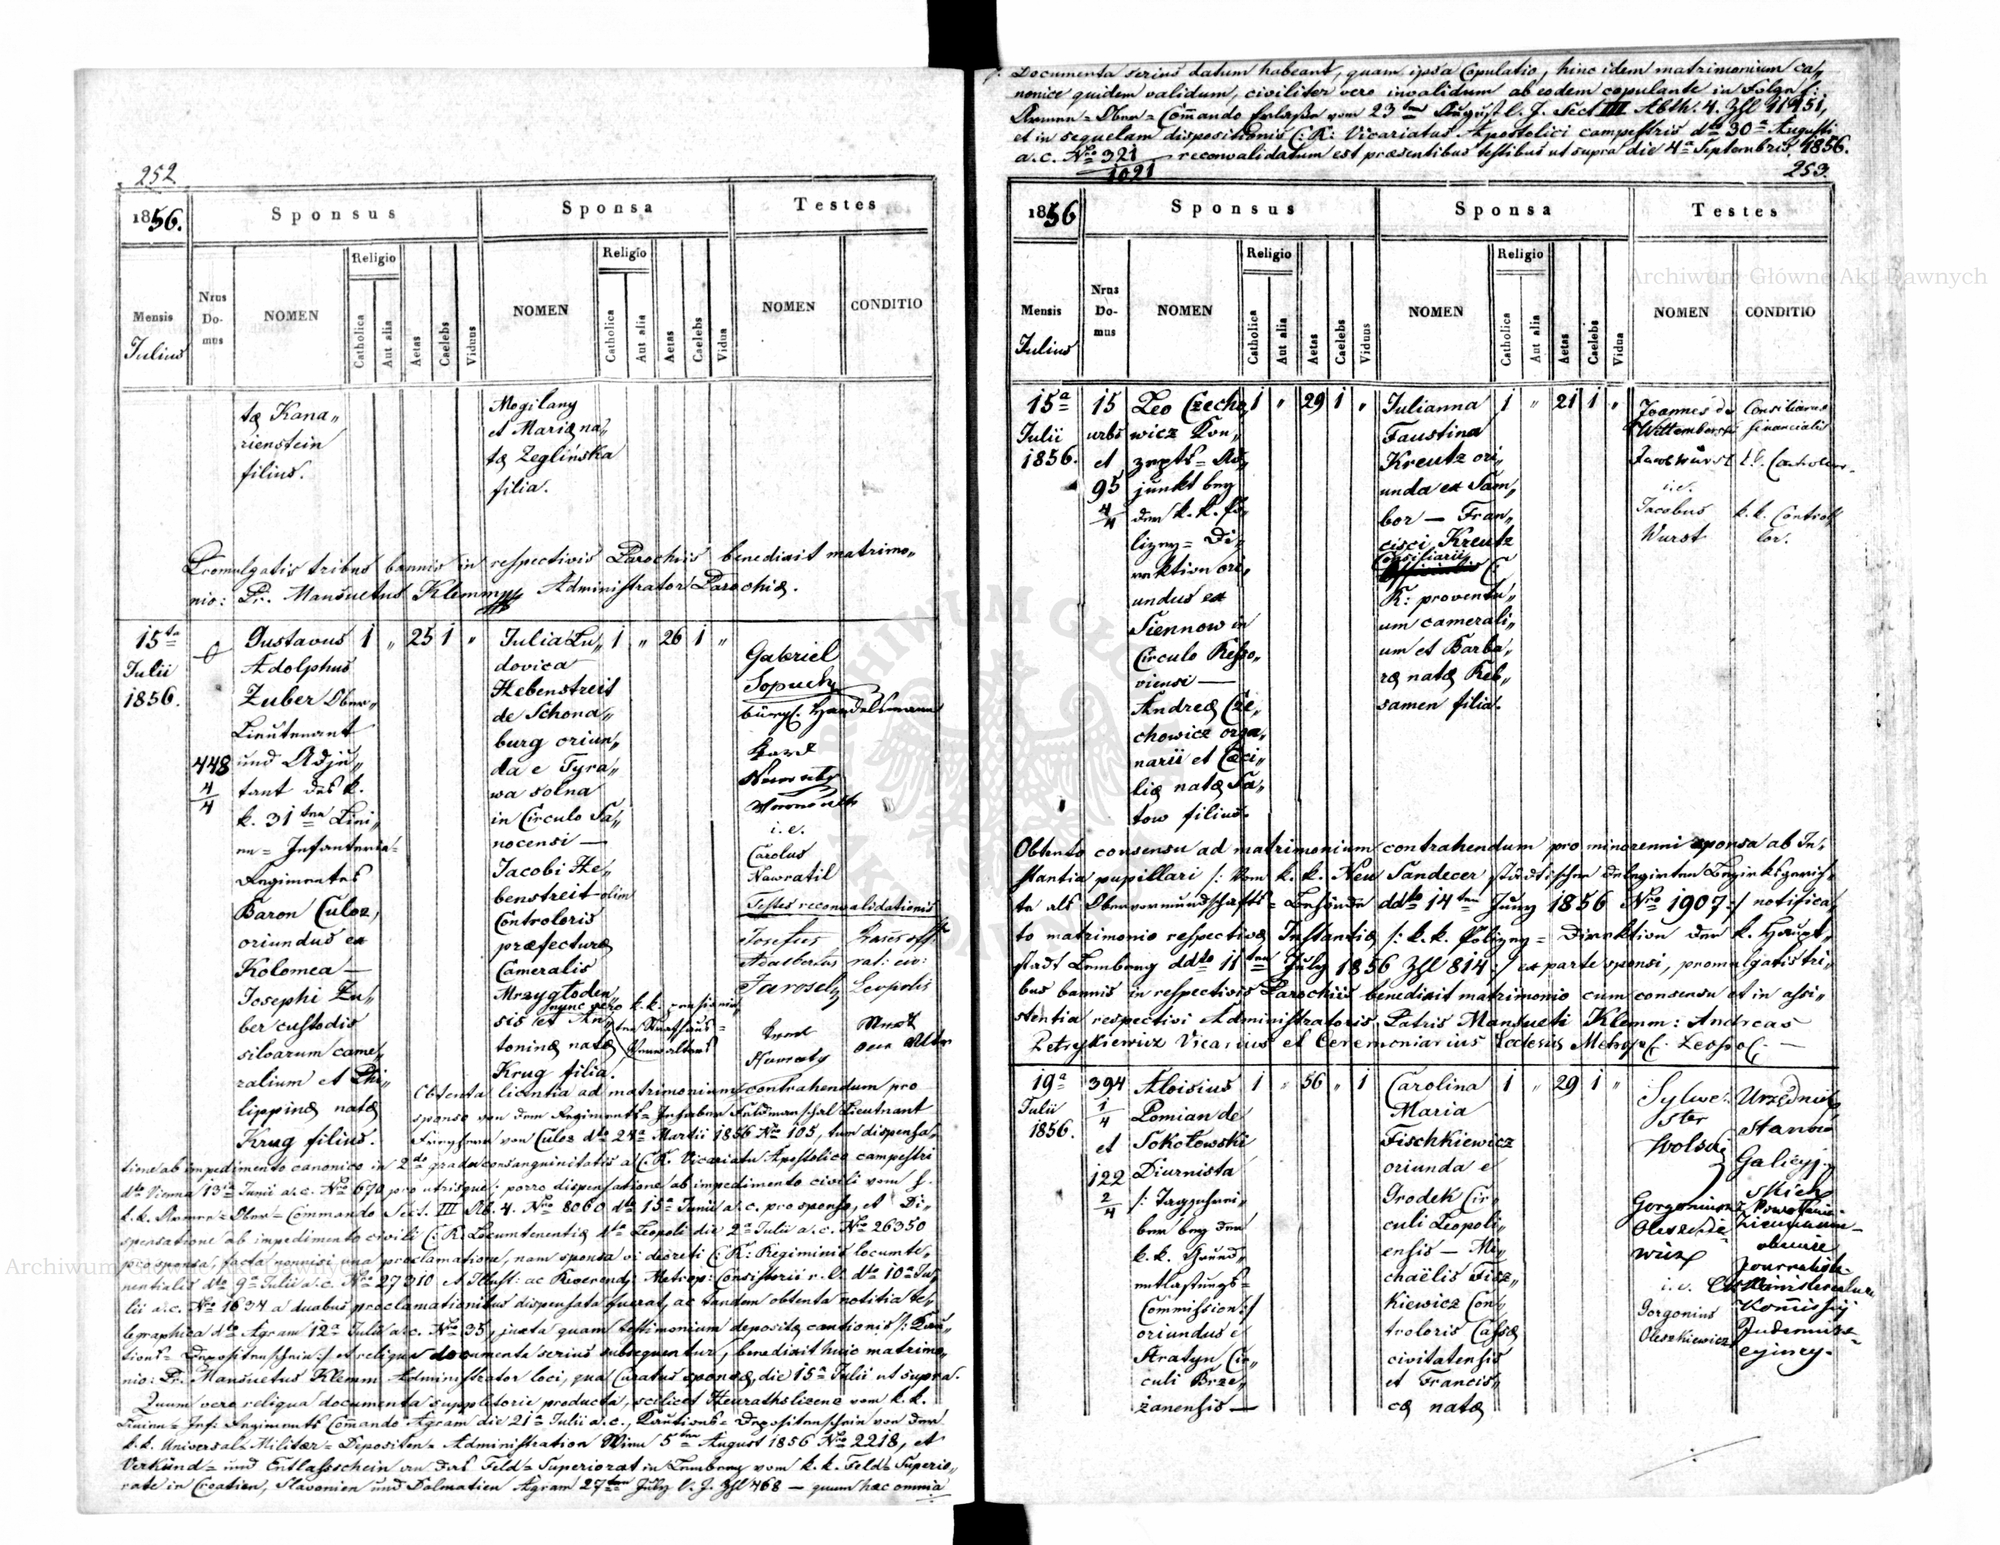 252
1856.
Sponsus
Sponsa
Testes
Mensis
Julius
Nrus
Do-
mus
NOMEN
Religio
Catholica
Aut alia
Aetas
Caelebs
Viduus
NOMEN
Religio
Catholica
Aut alia
Aetas
Caelebs
Vidua
NOMEN
CONDITIO
tæ Kana„
rienstein
filius.
Mogilany
et Mariæ na„
tæ Zeglińska
filia.
Promulgatis tribus bannis in respectivis Parochiis benedixit matrimo„
nio: Pr. Mansuetus Klemm Administrator Parochiæ.
15ta
Julii
1856.
448
4/4
Gustavus
Adolphus
Zuber Ober„
Lieutenant
und Adju„
tant des k.
k. 31ten Lini„
en= Infanterie=
Regimentes
Baron Culoz,
oriundus ex
Kolomea —
Josephi Zu„
ber custodis
silvarum came„
ralium et Phi„
lippinæ natæ
Krug filius.
1 „ 25 1 „
Julia Lu„
dovica
Hebenstreit
de Schona„
burg oriun„
da e Tyra„
wa solna
in Circulo Sa„
nocensi —
Jacobi He„
benstreit olim
Controloris
præfecturæ
Cameralis
Mrzygłoden„
sis et An„
toninæ natæ
Krug filia.
1 „ 26 1 „
Gabriel
Sopuch
bürgl. Handelsmann
Karl
i.e.
Carolus
Nawratil
Testes reconvalidationis
Josefus
Adalbertus
Jarosch
Leopolis
Obtenta licentia ad matrimonium contrahendum pro
sponso von dem Regiments= Inhaber Feldmarschal Lieutnant
von Culoz dto 24a Martii 1856 Nro 105, tum dispensa„
tione ab impedimento canonico in 2do gradu consanguinitatis a C.K. Vicariatu Apostolico campestri
dto Vienna 13a Junii a.c. Nro 670 pro utrisque; porro dispensatione ab impedimento civili vom h.
k.k. Armee= Ober= Commando Sect. III Ab. 4. Nro 8060 dto 15a Junii a.c. pro sponso, et Di„
spensatione ab impedimento civili C:K: Locumtenentiæ dto Leopoli die 2a Julii a.c. Nro 26350
pro sponsa, facta nonnisi una proclamatione, nam sponsa vi decreti C:K: Regiminis locumte„
nentialis dto 9a Julii a.c. Nro 27310 et Illust: ac Reverend: Metrop: Consistorii r.l. dto 10a Ju„
lii a.c. Nro 1634 a duabus proclamationibus dispensata fuerat, ac tandem obtenta notitia te„
legraphica dto Agram 12a Julii a.c. Nro 35, juxta quam testimonium depositæ cautionis /: Kau„
tions= Depositenschein :/ et reliqua documenta serius subsequentur, benedixit huic matrimo„
nio: Pr. Mansuetus Klemm Administrator loci, qua Curatus sponsæ, die 15a Julii ut supra.
Quum vero reliqua documenta suppletorie producta, scilicet Heurathslicenz vom k.k.
Linien= Inf: Regiments Comando Agram die 21a Julii a.c., Kautions= Depositenschein von der
k.k. Universal= Militär= Depositen= Administration Wien 5ten August 1856 Nro 2218, et
Verkünd= und Entlassschein an das Feld= Superiorat in Lemberg vom k.k. Feld= Superio„
rate in Croatien, Slavonien und Dalmatien Agram 27ten July l. J. Zhl 468 — quum hæc omnia
Documenta serius datum habeant, quam ipsa Copulatio, hinc idem matrimonium ca„
nonice quidem validum, civiliter vero invalidum ab eodem copulante in Folge
Armee= Ober= Commando Erlaßes vom 23ten August l. J. Sect III Abth. 4. Zhl 11451,
et in sequelam dispositionis C:K: Vicariatus Apostolici campestris dto 30a Augusti
a.c. Nro 321/1021 reconvalidatum est præsentibus testibus ut supra die 4a Septembris 1856.
253.
1856
Sponsus
Sponsa
Testes
Mensis
Julius
Nrus
Do-
mus
NOMEN
Religio
Catholica
Aut alia
Aetas
Caelebs
Viduus
NOMEN
Religio
Catholica
Aut alia
Aetas
Caelebs
Vidua
NOMEN
CONDITIO
15a
Julii
1856.
15
urbs
et
95
4/4
Leo Czecho„
wicz Kon„
zepts= Ad„
junkt bey
der k.k. Po„
lizey= Di„
rektion ori„
undus ex
Siennow in
Circulo Rzeszo„
viensi —
Andreæ Cze„
chowicz orga„
narii et Cæci„
liæ natæ Sa„
tow filius.
1 „ 29 1 „
Julianna
Faustina
Kreutz ori„
unda ex Sam„
bor — Fran„
cisci Kreutz
Consiliarii
C.
K: proventu„
um camerali„
um et Barba„
ræ natæ Reb„
samen filia.
1 „ 21 1 „
Joannes de
Wittemberski
Jacob Wurst
i.e.
Jacobus
Wurst
Consiliarius
financialis
k.k. Control
lor.
Obtento consensu ad matrimonium contrahendum pro minorenni sponsa ab In„
stantia pupillari /: vom k.k. Neu Sandecer städtischen delegirten Bezirksgerich„
te als Obervormundschafts= Behörde ddto 14ten Juny 1856 Nro 1907 :/ notifica„
to matrimonio respectivæ Instantiæ /: k.k. Polizey= Direktion der k. Haupt„
stadt Lemberg ddto 11ten July 1856 Zhl 814 :/ ex parte sponsi, promulgatis tri„
bus bannis in respectivis Parochiis benedixit matrimonio cum consensu et in assi„
stentia respectivi Administratoris, Patris Mansueti Klemm: Andreas
Petrykiewicz Vicarius et Ceremoniarius Ecclesiæ Metropol: Leopol: —
19a
Julii
1856.
394
1/4
et
122
2/4
Aloisius
Pomian de
Sokołowski
Diurnista
/: Tagschrei„
ber bey der
k.k. Grund„
entlastungs=
Commission :/
oriundus e
Stratyn Cir„
culi Brze„
żanensis —
1 „ 56 „ 1
Carolina
Maria
Fischkiewicz
oriunda e
Grodek Cir„
culi Leopoli„
ensis — Mi„
chaëlis Fisz„
kiewicz Con„
troloris Cassæ
civitatensis
et Francis„
cæ natæ
1 „ 29 1 „
Sylwe„
ster
Wolski
Urzędnik
Stanów
Galicyj„
skich
Gorgonius
Oleszkie„
wicz
i.e.
Gorgonius
Oleszkiewicz
obecnie
Kommissyi
Archiwum Główne Akt Dawnych
Archiwum Główne Akt Dawnych
ARCHIWUM GŁÓWNE AKT DAWNYCH